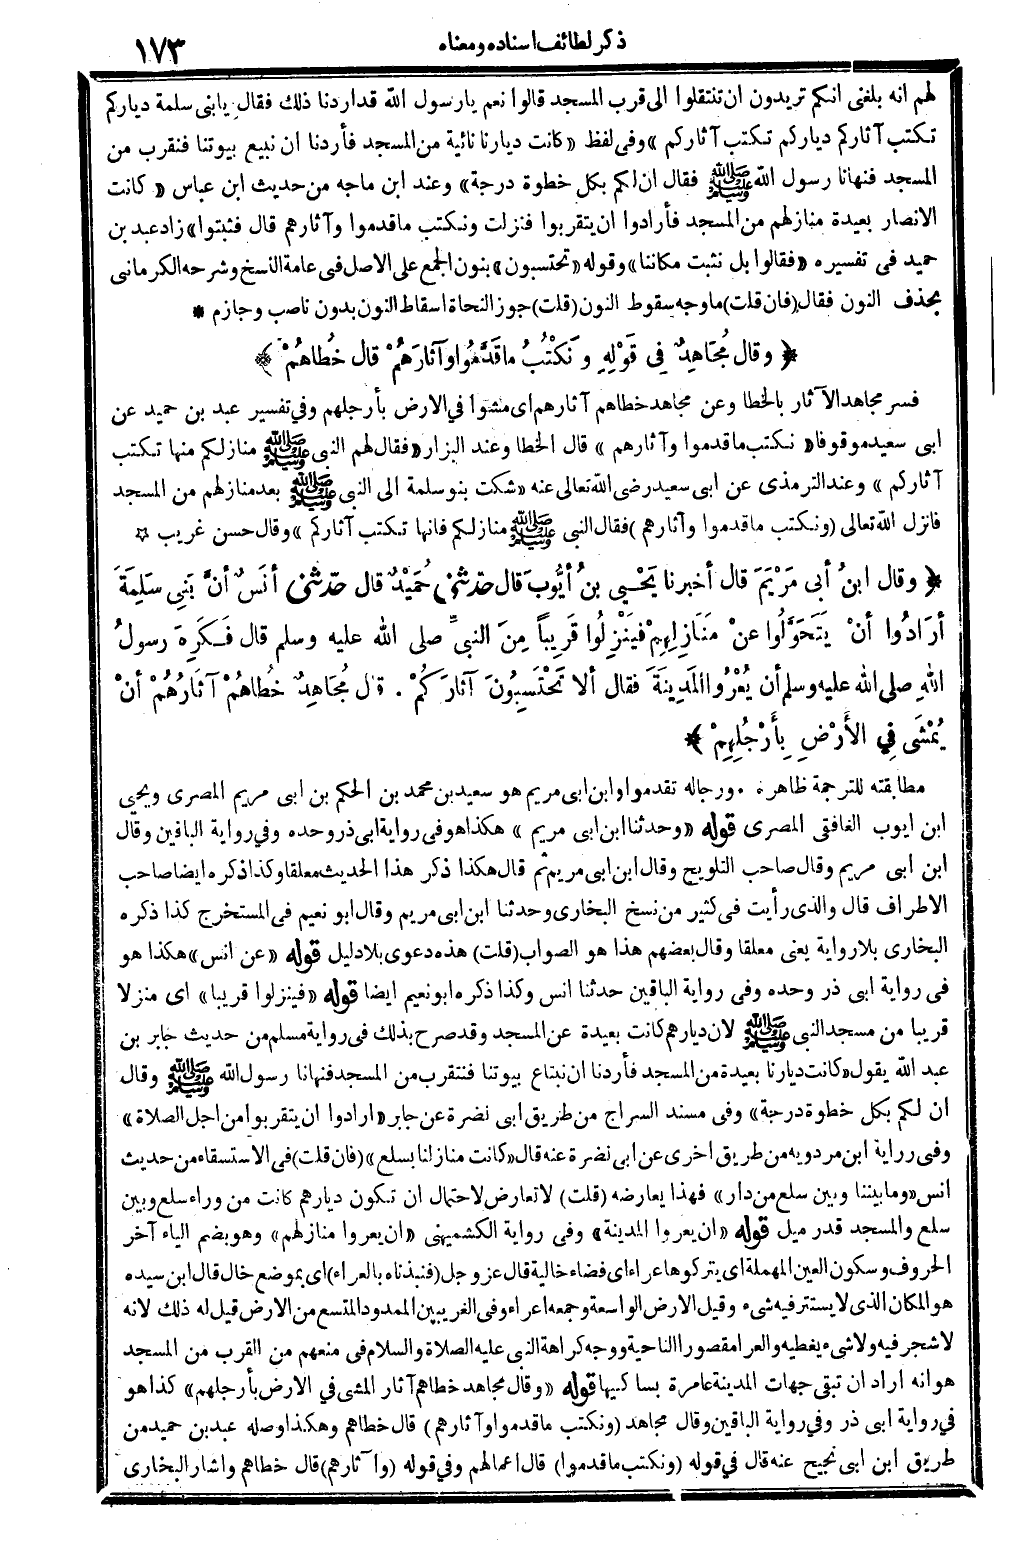 ذكر لطائف اسناده ومعناه ١٧٣
لهم انه بلغنى انكم تريدون ان تنتقلوا الى قرب المسجد قالوا نعم يارسول الله قد اردنا ذلك فقال يابنى سلمة دياركم
تكتب آثاركم دياركم تكتب آثاركم » وفى لفظ « كانت ديارنا نائية من المسجد فأردنا ان نبيع بيوتنا فنقرب من
المسجد فنهانا رسول الله ﷺ فقال ان لكم بكل خطوة درجة» وعند ابن ماجه من حديث ابن عباس « كانت
الانصار بعيدة منازلهم من المسجد فأرادوا ان يتقربوا فنزلت ونكتب ماقدموا وآثارهم قال فثبتوا» زاد عبد بن
حميد فى تفسيره «فقالوا بل نثبت مكاننا» وقوله «تحتسبون» بنون الجمع على الاصل فى عامة النسخ وشرحه الكرمانى
بحذف النون فقال (فان قلت) ماوجه سقوط النون (قلت) جوز النحاة اسقاط النون بدون ناصب وجازم *
﴿ وقال مُجَاهِدٌ فِي قَوْلِهِ وَنَكْتُبُ ماقَدَّمُوا وآثارَهُمْ قال خُطاهُمْ ﴾
فسر مجاهد الآثار بالخطا وعن مجاهد خطاهم آثارهم اى مشوا في الارض بأرجلهم وفي تفسير عبد بن حميد عن
ابى سعيد موقوفا« نكتب ماقدموا وآثارهم » قال الخطا وعند البزار «فقال لهم النبى ﷺ منازلكم منها تكتب
آثاركم » وعند الترمذى عن ابى سعيد رضى الله تعالى عنه «شكت بنو سلمة الى النبى ﷺ بعد منازلهم من المسجد
فانزل الله تعالى (ونكتب ماقدموا وآثارهم )فقال النبى ﷺ منازلكم فانها تكتب آثاركم » وقال حسن غريب ☆
﴿ وقال ابنُ أبى مَرْيَمَ قال أخبرنا يَحْيى بنُ أَيُّوبَ قال حدّثنى حُمَيْدٌ قال حدّثنى أنَسٌ أنَّ بَنِي سَلِمَةَ
أرَادُوا أنْ يَتَحَوَّلُوا عنْ مَنَازِلِهِمْ فَيَنْزِلُوا قَرِيباً مِنَ النبىِّ صلى الله عليه وسلم قال فَكَرِهَ رسولُ
اللهِ صلى الله عليه وسلم أن يُعْرُوا المَدِينَةَ فقال ألا تَحْتَسِبُونَ آثارَكُمْ . قال مُجَاهِدٌ خُطاهُمْ آثَارُهُمْ أنْ
يُمْشَى فِي الأَرْضِ بِأَرْجُلِهِمْ ﴾
مطابقته للترجمة ظاهرة . ورجاله تقدموا وابن ابى مريم هو سعيد بن محمد بن الحكم بن ابى مريم المصرى ويحيى
ابن ايوب الغافقى المصرى قوله «وحدثنا ابن ابى مريم » هكذا هو فى رواية ابى ذر وحده وفي رواية الباقين وقال
ابن ابى مريم وقال صاحب التلويح وقال ابن ابى مريم ثم قال هكذا ذكر هذا الحديث معلقا وكذا ذكره ايضا صاحب
الاطراف قال والذى رأيت فى كثير من نسخ البخارى وحدثنا ابن ابى مريم وقال ابو نعيم فى المستخرج كذا ذكره
البخارى بلا رواية يعنى معلقا وقال بعضهم هذا هو الصواب (قلت) هذه دعوى بلا دليل قوله «عن انس» هكذا هو
فى رواية ابى ذر وحده وفى رواية الباقين حدثنا انس وكذا ذكره ابو نعيم ايضا قوله «فينزلوا قريبا» اى منزلا
قريبا من مسجد النبى ﷺ لان ديارهم كانت بعيدة عن المسجد وقد صرح بذلك فى رواية مسلم من حديث جابر بن
عبد الله يقول «كانت ديارنا بعيدة من المسجد فأردنا ان نبتاع بيوتنا فنتقرب من المسجد فنهانا رسول الله ﷺ وقال
ان لكم بكل خطوة درجة» وفى مسند السراج من طريق ابى نضرة عن جابر «ارادوا ان يتقربوا من اجل الصلاة »
وفى رراية ابن مردويه من طريق اخرى عن ابى نضرة عنه قال «كانت منازلنا بسلع» (فان قلت) فى الاستسقاء من حديث
انس «وما بيننا وبين سلع من دار» فهذا يعارضه (قلت) لا تعارض لاحتمال ان تكون ديارهم كانت من وراء سلع وبين
سلع والمسجد قدر ميل قوله «ان يعروا المدينة» وفى رواية الكشميهنى «ان يعروا منازلهم» وهو بضم الياء آخر
الحروف وسكون العين المهملة اى يتركوها عراء اى فضاء خالية قال عز وجل (فنبذناه بالعراء) اى بموضع خال قال ابن سيده
هو المكان الذى لا يستتر فيه شىء وقيل الارض الواسعة وجمعه اعراء وفى الغريبين الممدود المتسع من الارض قيل له ذلك لانه
لا شجر فيه ولا شىء يغطيه والعرا مقصورا الناحية ووجه كراهة النبى عليه الصلاة والسلام فى منعهم من القرب من المسجد
هو انه اراد ان تبقى جهات المدينة عامرة بساكنيها قوله «وقال مجاهد خطاهم آثار المشى في الارض بأرجلهم» كذا هو
في رواية ابى ذر وفي رواية الباقين وقال مجاهد (ونكتب ماقدموا وآثارهم ) قال خطاهم وهكذا وصله عبد بن حميد من
طريق ابن ابى نجيح عنه قال في قوله (ونكتب ماقدموا) قال اعمالهم وفي قوله (وآثارهم) قال خطاهم واشار البخارى